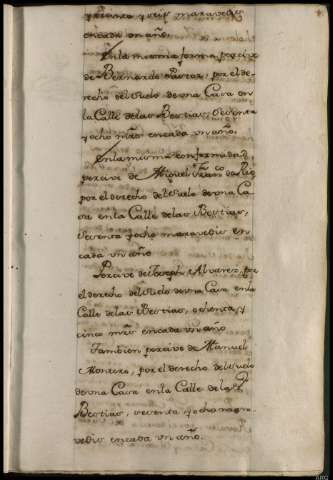 y treinta y seis maravedis
en cada un año.
En la misma forma percive
de Bernardo Pastor, por el de-
recho del suelo de una Casa en
la Calle de las Bestias, sesenta
y ocho mrs en cada un año.
En la misma conformidad,
percive de Miguel Franco
por el derecho del suelo de una Ca-
sa en la Calle de las Bestias,
sesenta y ocho maravedis en
cada un año
Percive de Joseph Alvarez, por
el derecho del suelo de una Casa en la
Calle de las Bestias, ochenta y
cinco mrs en cada un año
Tambien percive de Manuel
Montero, por el derecho del suelo
de una Casa en la Calle de las
Bestias, sesenta y ocho mara-
vedis en cada un año.